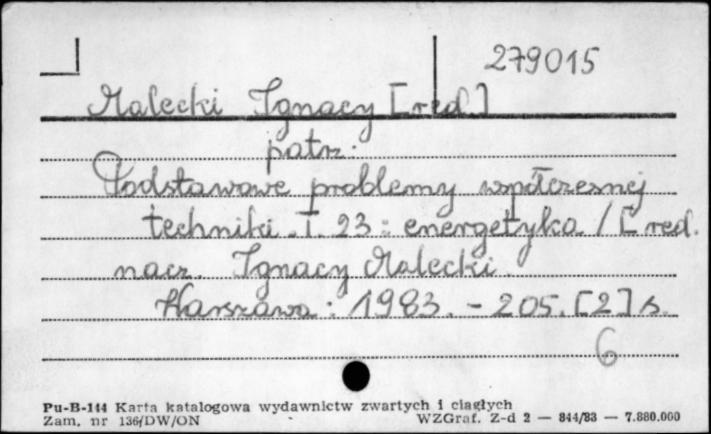 279015
Malecki Ignacy [red.]
patrz.
Podstawowe problemy współczesnej
techniki. T. 23 : energetyka / [red.
nacz. Ignacy Malecki.
Warszawa : 1983. - 205. [2] s.
6
Pu-B-144 Karta katalogowa wydawnictw zwartych i ciągłych
Zam. nr 136/DW/ON WZGraf. Z-d 2 — 844/83 — 7.880.000